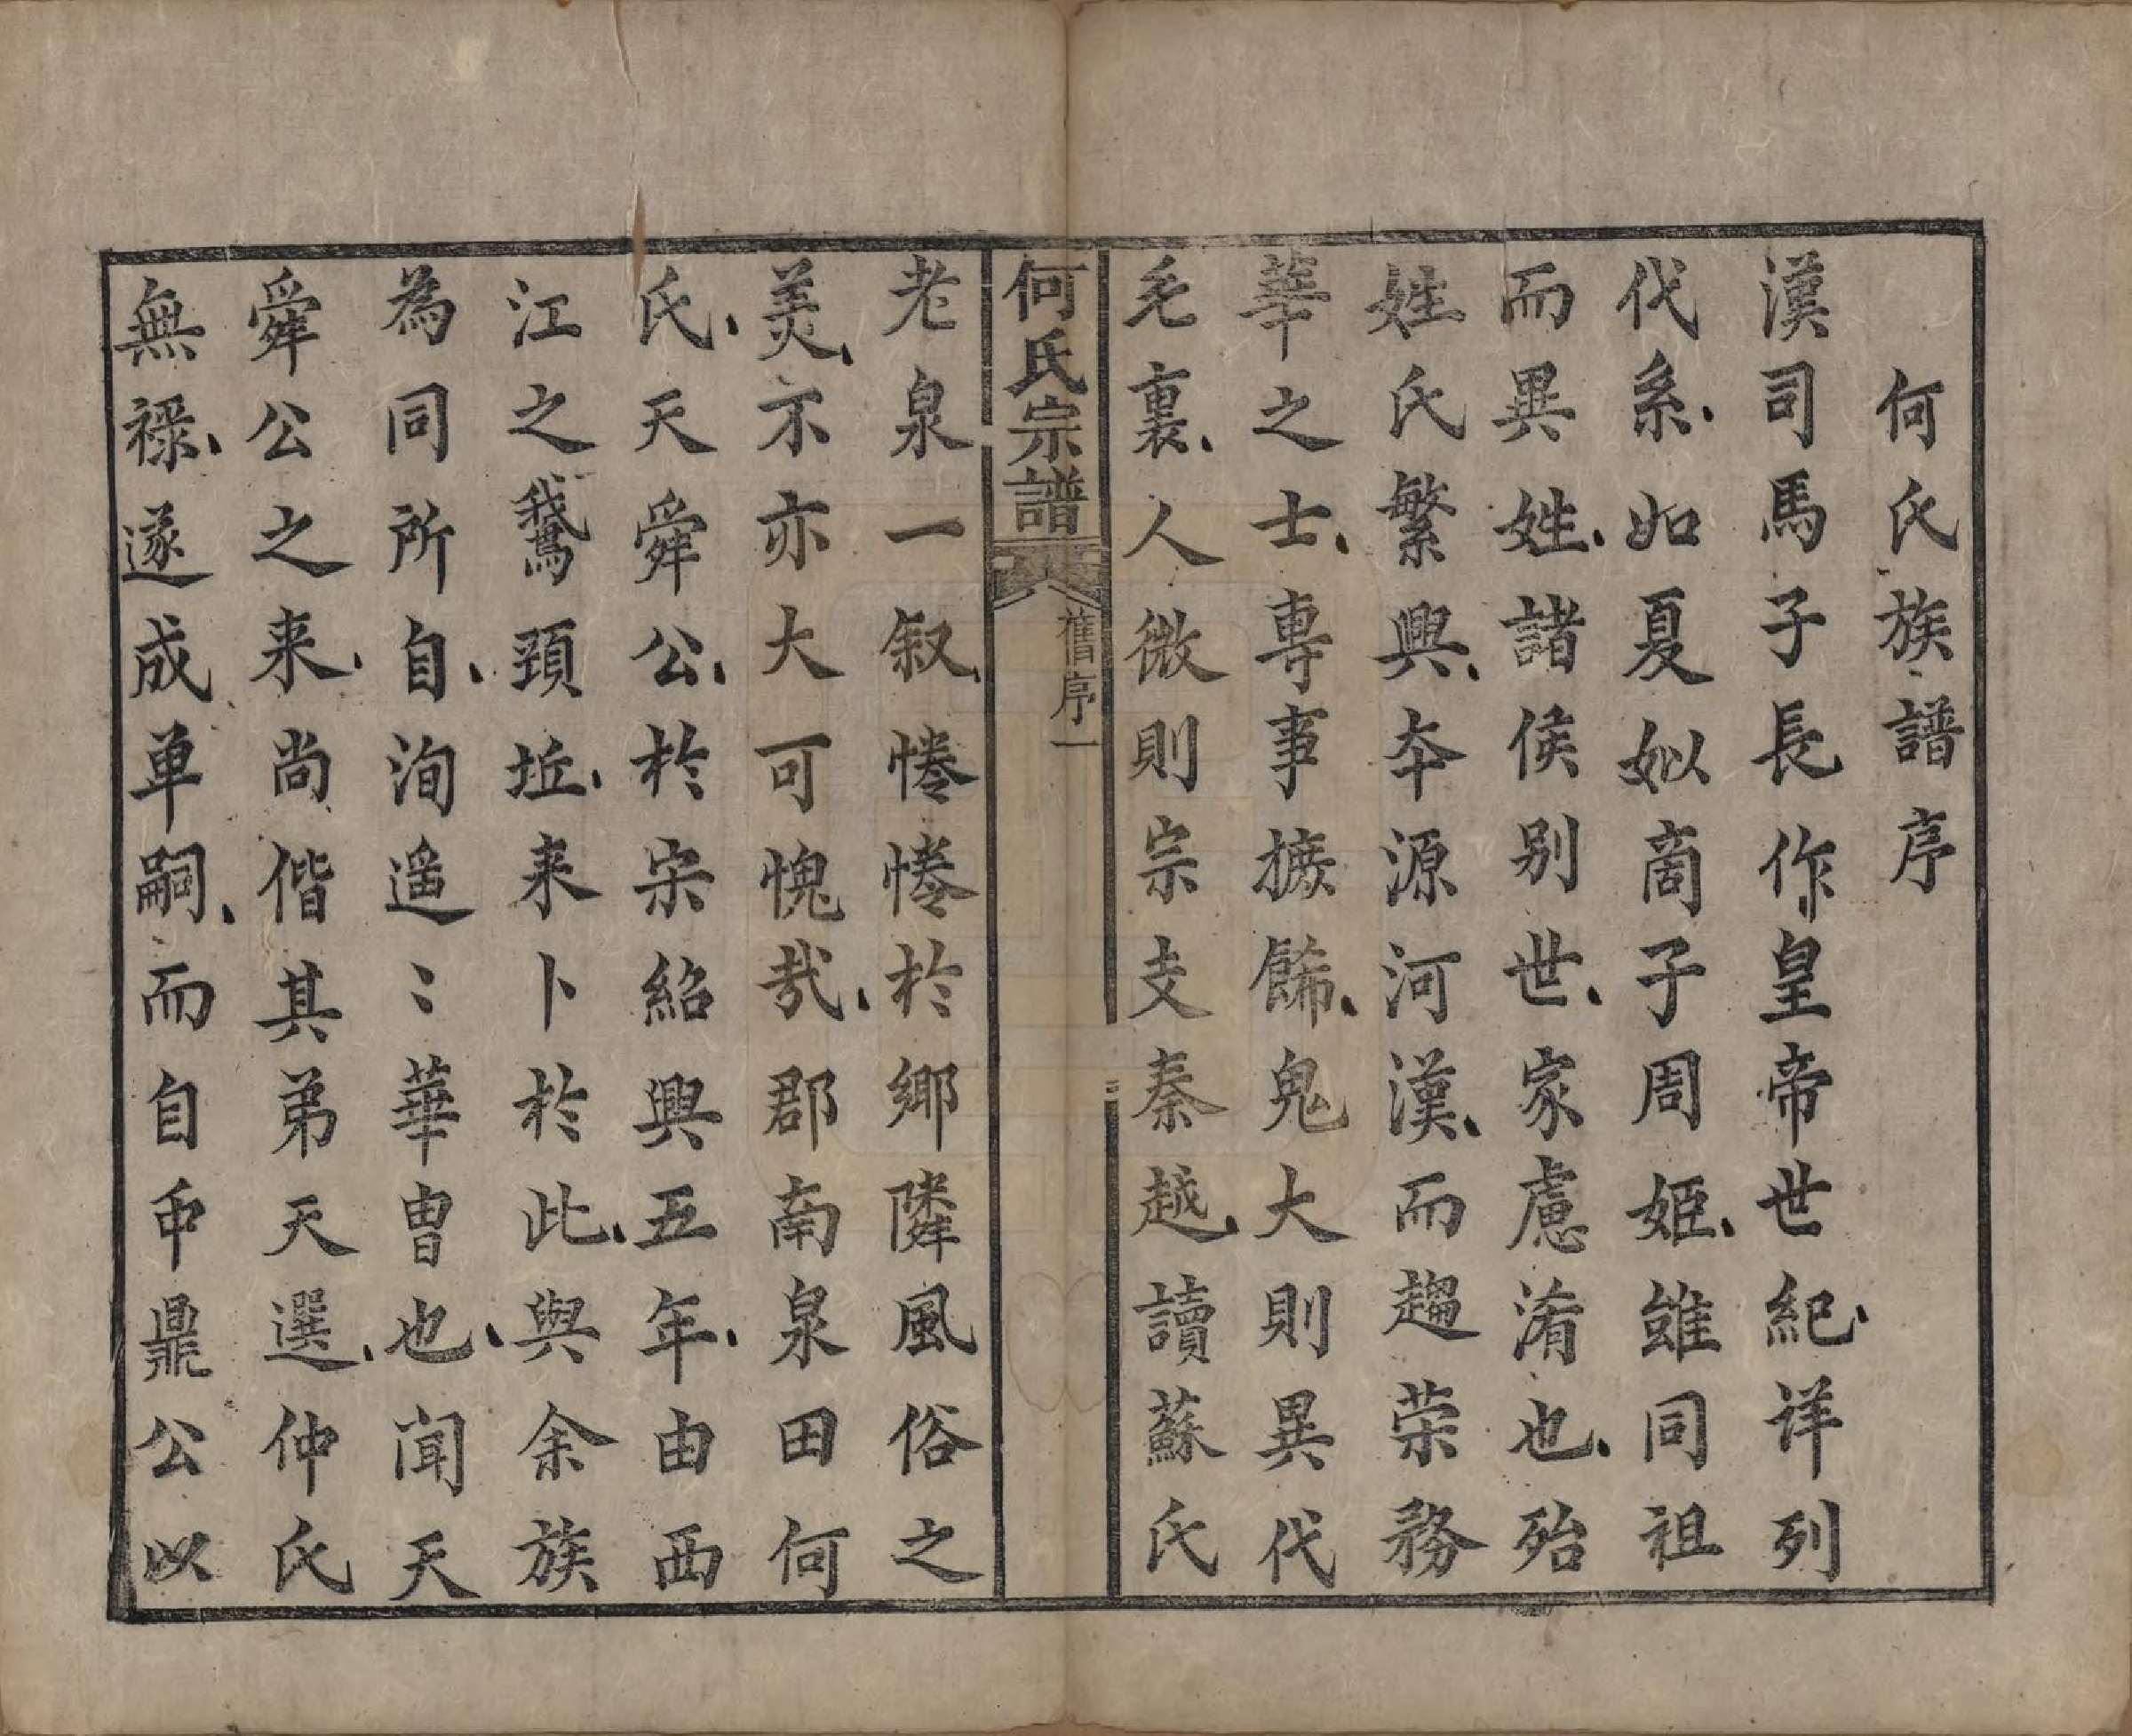 何氏族譜序
漢司馬子長作皇帝世紀、详列
代系、如夏姒啇子周姬、雖同祖
而異姓、諸侯别世、家慮淆也、殆
姓氏繁興、夲源河漢、而趨荣務
華之士、專事摭飾、鬼大則異代
毛裏、人微則宗支秦越、讀蘇氏
何氏宗譜
舊序一
老泉一叙、惓惓於鄉隣風俗之
美、示亦大可愧哉、郡南泉田何
氏、天舜公、於宋紹興五年、由西
江之鵝頸坵、来卜於此、與余族
為同所自、洵遥〻華曺也、闻天
舜公之来、尚偕其弟天選、仲氏
無禄、遂成单嗣、而自中鼎公以